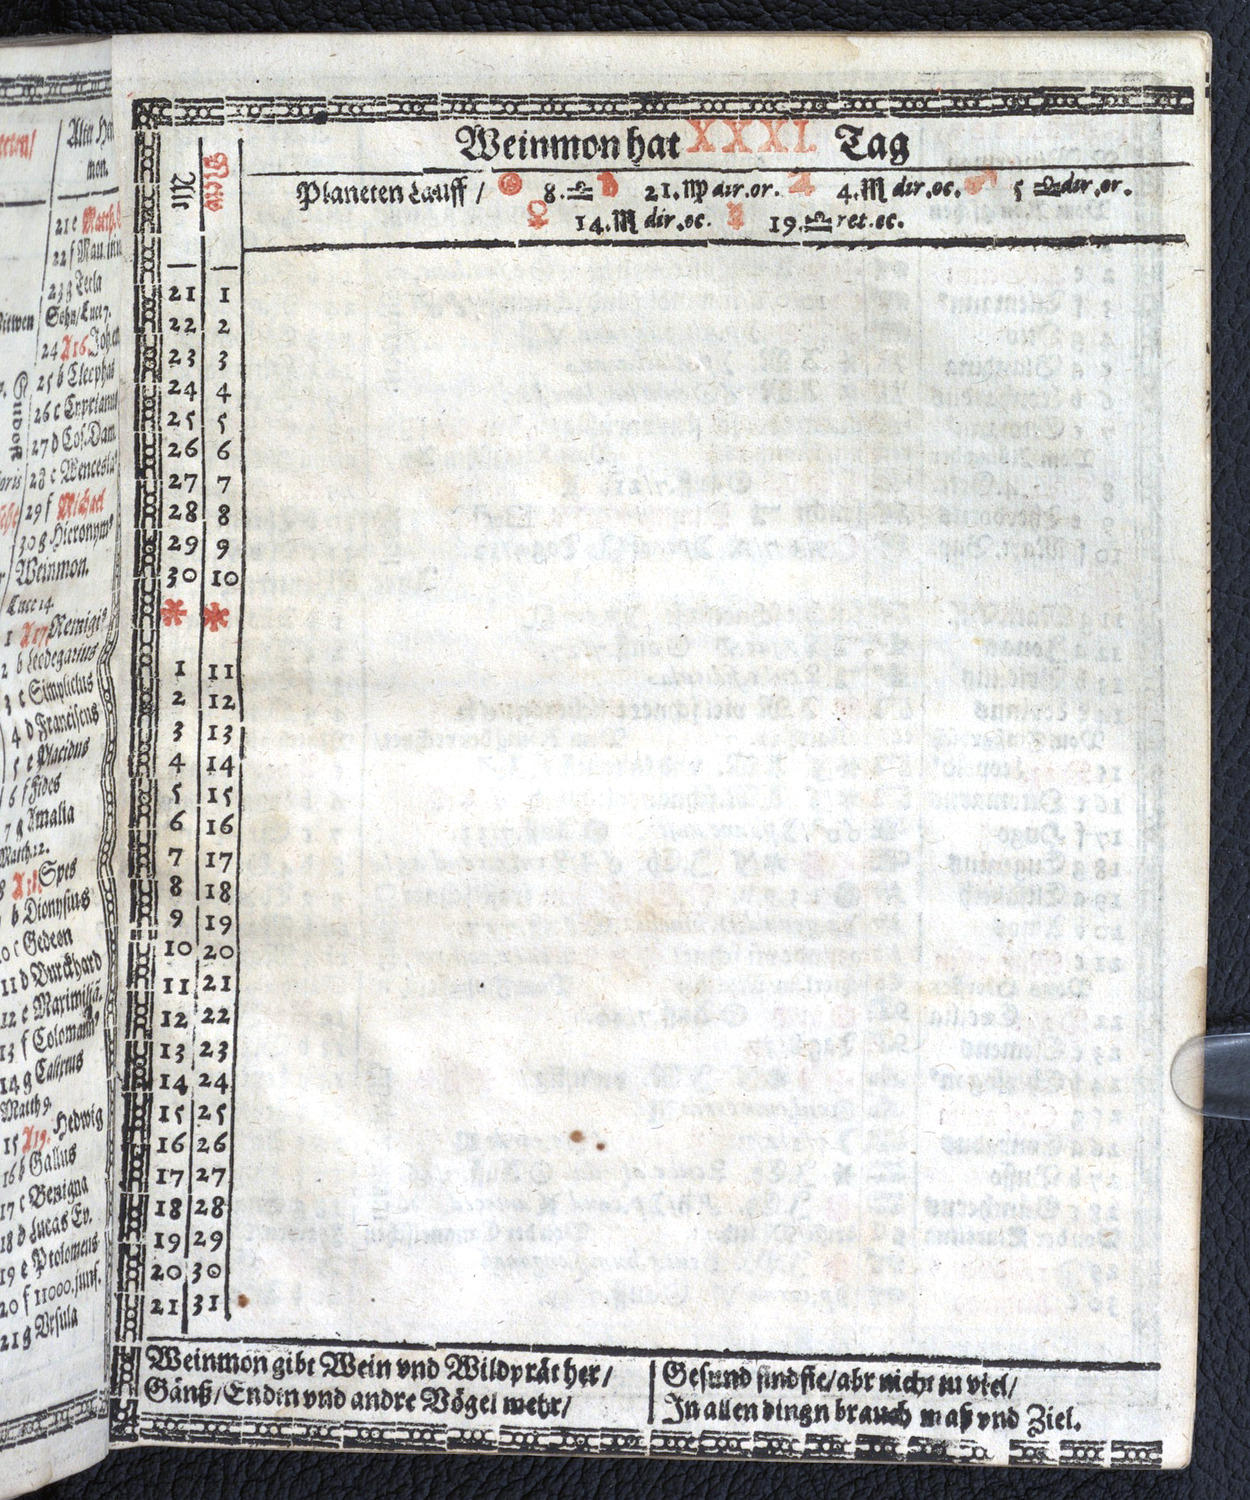 Alter
mon.
21 e Matth.
22 f Mauritiu
23 g Tecla
Sohn/Luc 7.
24 A16. Joh.
25 b Cleophas
26 c Cyprianus
27 d Cos. Dam.
28 c Wencesla
29 f Michael
30 g Hieronym9
Weinmon.
Luce 14.
1 A17. Remigi9
2 b Leodegarius
3 c Simplicius
4 d Franciscus
5 e Placidus
6 f Fides
7 g Amalia
Matth. 22.
8 A18. Spes
b Dionysius
10 c Gedeon
11 d Burckhard
12 e Maximiliā.
13 f Coloman9
14 g Calixtus
Matth 9.
15 A19. Hedwig
16 b Gallus
17 c Benigna
18 d Lucas Ev.
19 e Ptolomeus
20 f 11000. junf.
21 g Ursula
Weinmon hat XXXI. Tag
Planeten Lauff / ☉ 8. ♎ ♄ 21. ♍ dir. or. ♃ 4. ♏ dir. oc. ♂ 5 ♎ dir. or.
♀ 14. ♏ dir. oc. ☿ 19. ♎ ret. oc.
Alt. New
21 1
22 2
23 3
24 4
25 5
26 6
27 7
28 8
29 9
30 10
* *
1 11
2 12
3 13
4 14
5 15
6 16
7 17
8 18
9 19
10 20
11 21
12 22
13 23
14 24
15 25
16 26
17 27
18 28
19 29
20 30
21 31
Weinmon gibt Wein vnd Wildprät her/
Gänß/Endtn vnd andre Vögel mehr/
Gesund sind sie/abr nicht zu viel/
In allen dingn brauch maß vnd Ziel.